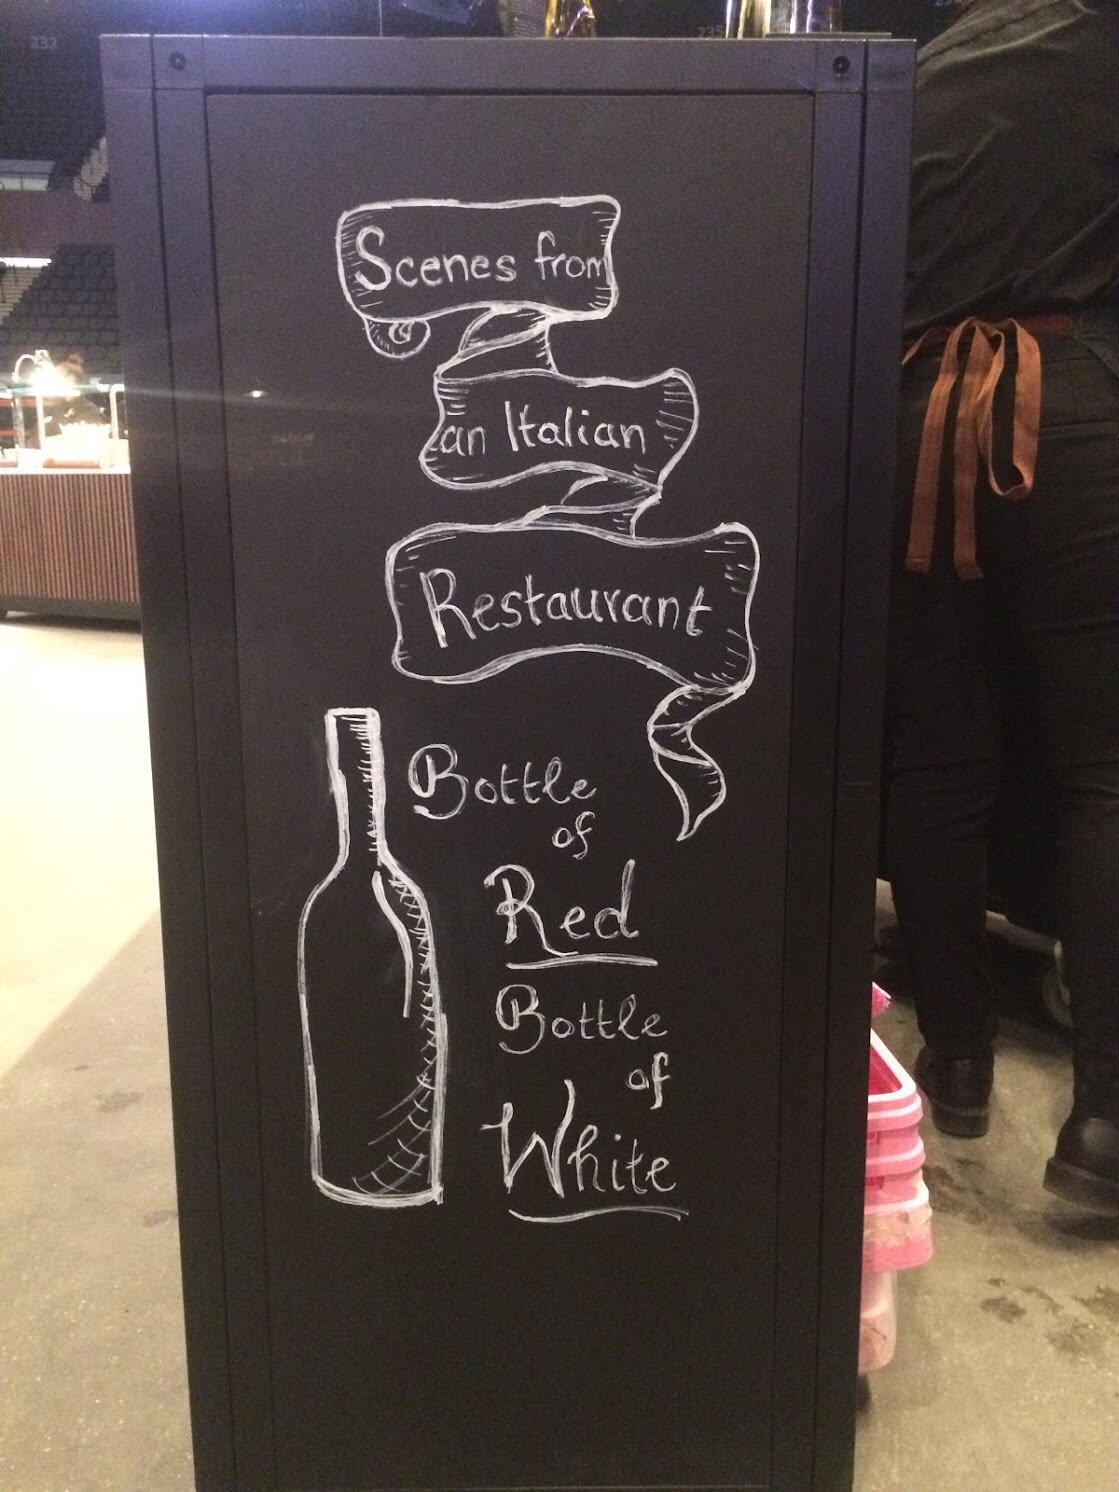 232
Scenes from
an Italian
Restaurant
Bottle
of
Red
Bottle
of
White